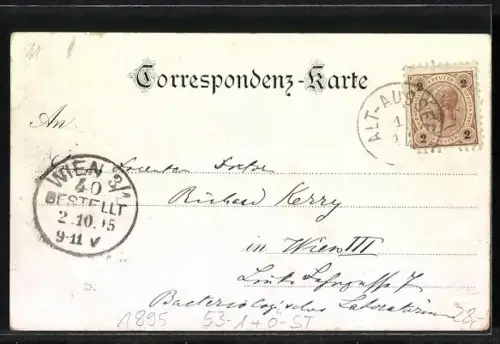 11
Correspondenz-Karte
An
ALT-AUSSEE
2 2
WIEN 3/1
40
BESTELLT
2.10.95
9-11 V
Richard Kerry
in Wien III
7
Bacteriologisches Laboratorium
28,-
1895 53-1+0-ST